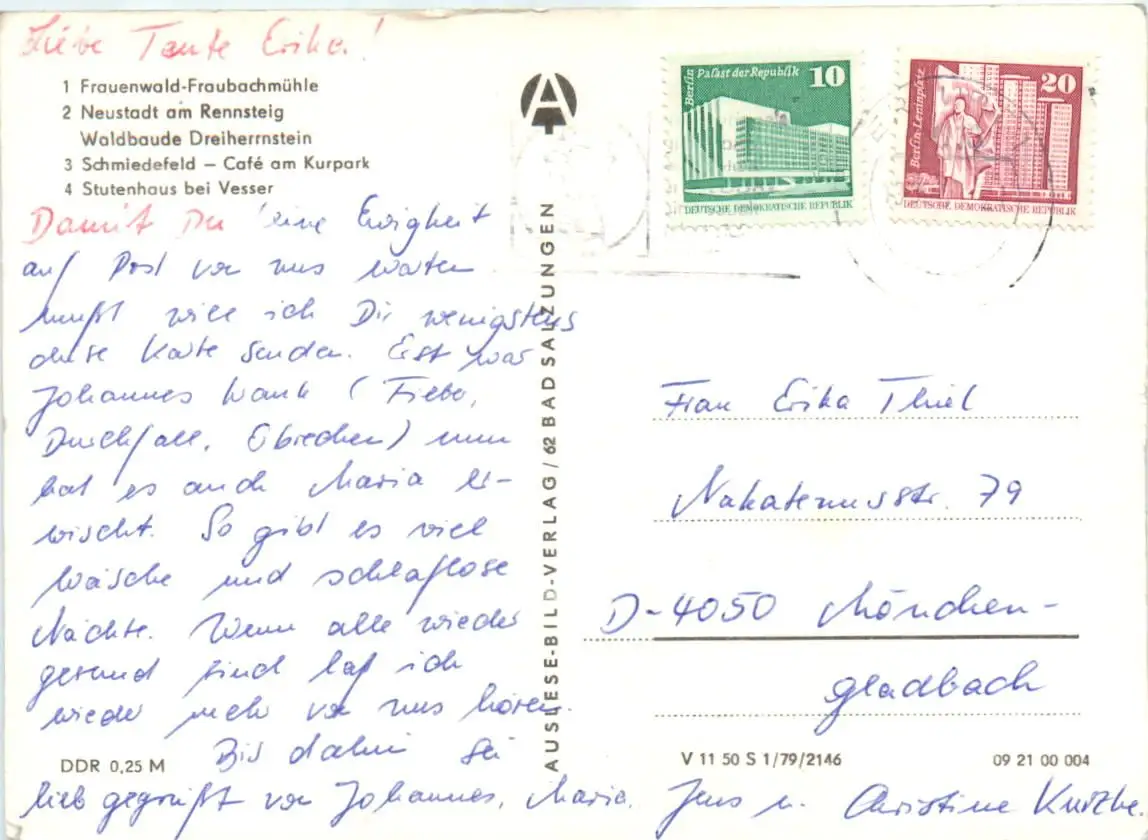 Liebe Tante Erika!
1 Frauenwald-Fraubachmühle
2 Neustadt am Rennsteig
Waldbaude Dreiherrnstein
3 Schmiedefeld – Café am Kurpark
4 Stutenhaus bei Vesser
Damit Du keine Ewigkeit
auf Post von uns warten
mußt will ich Dir wenigstens
diese Karte senden. Erst war
Johannes krank (Fieber,
Durchfall, Erbrechen) nun
hat es auch Maria er-
wischt. So gibt es viel
Wäsche und schlaflose
Nächte. Wenn alle wieder
gesund sind laß ich
wieder mehr von uns hören.
Bis dahin sei
lieb gegrüßt von Johannes, Maria, Jens u. Christine
DDR 0,25 M
AUSLESE-BILD-VERLAG / 62 BAD SALZUNGEN
Berlin Palast der Republik 10
DEUTSCHE DEMOKRATISCHE REPUBLIK
Berlin-Leninplatz 20
DEUTSCHE DEMOKRATISCHE REPUBLIK
Frau Erika Thiel
Nakatenusstr. 79
D-4050 Mönchen-
gladbach
V 11 50 S 1/79/2146
09 21 00 004